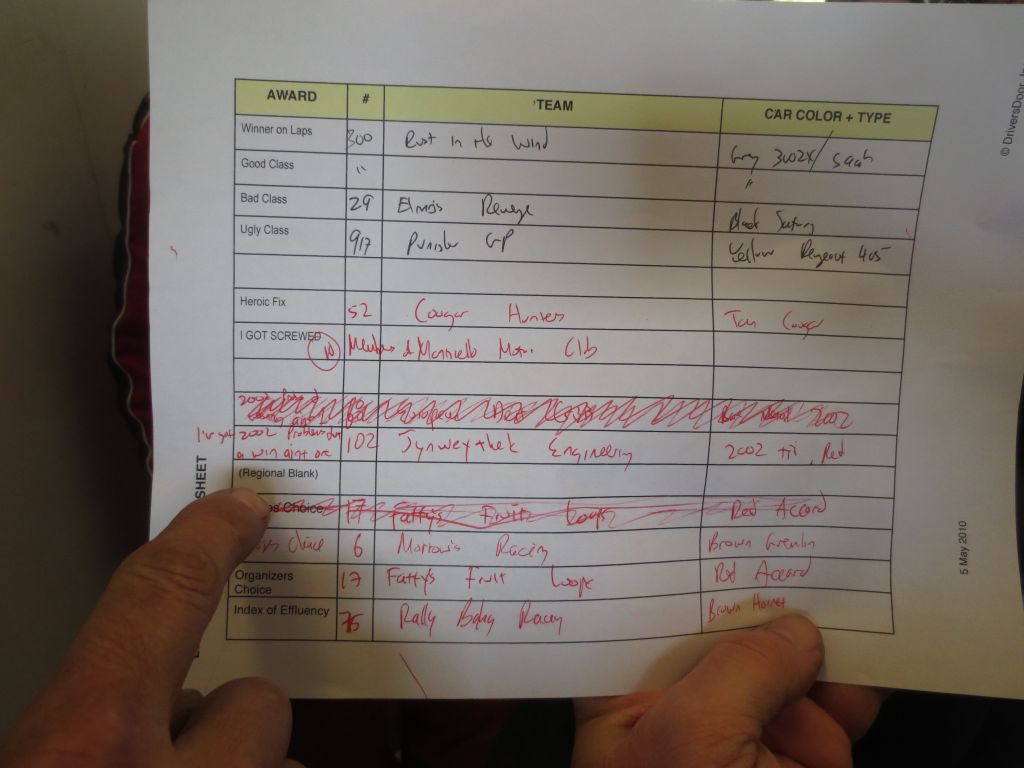 AWARD # TEAM CAR COLOR + TYPE
Winner on Laps 300 Rust in the Wind Grey 300ZX / Saab
Good Class " "
Bad Class 29 Elmo's Revenge Black
Ugly Class 917 Punisher GP Yellow Peugeot 405
Heroic Fix 52 Cougar Hunters Tan Cougar
I GOT SCREWED 10 Members of Monticello Motor Club
2002
I've got 2002 Problems but
a win aint one 102 Engineering 2002 tii, Red
(Regional Blank)
Choice 17 Fatty's Fruit Loops Red Accord
Choice 6 Morrow's Racing Brown Gremlin
Organizers
Choice 17 Fatty's Fruit Loops Red Accord
Index of Effluency 75 Rally Baby Racing Brown Hornet
SHEET
5 May 2010
© DriversDoor, In